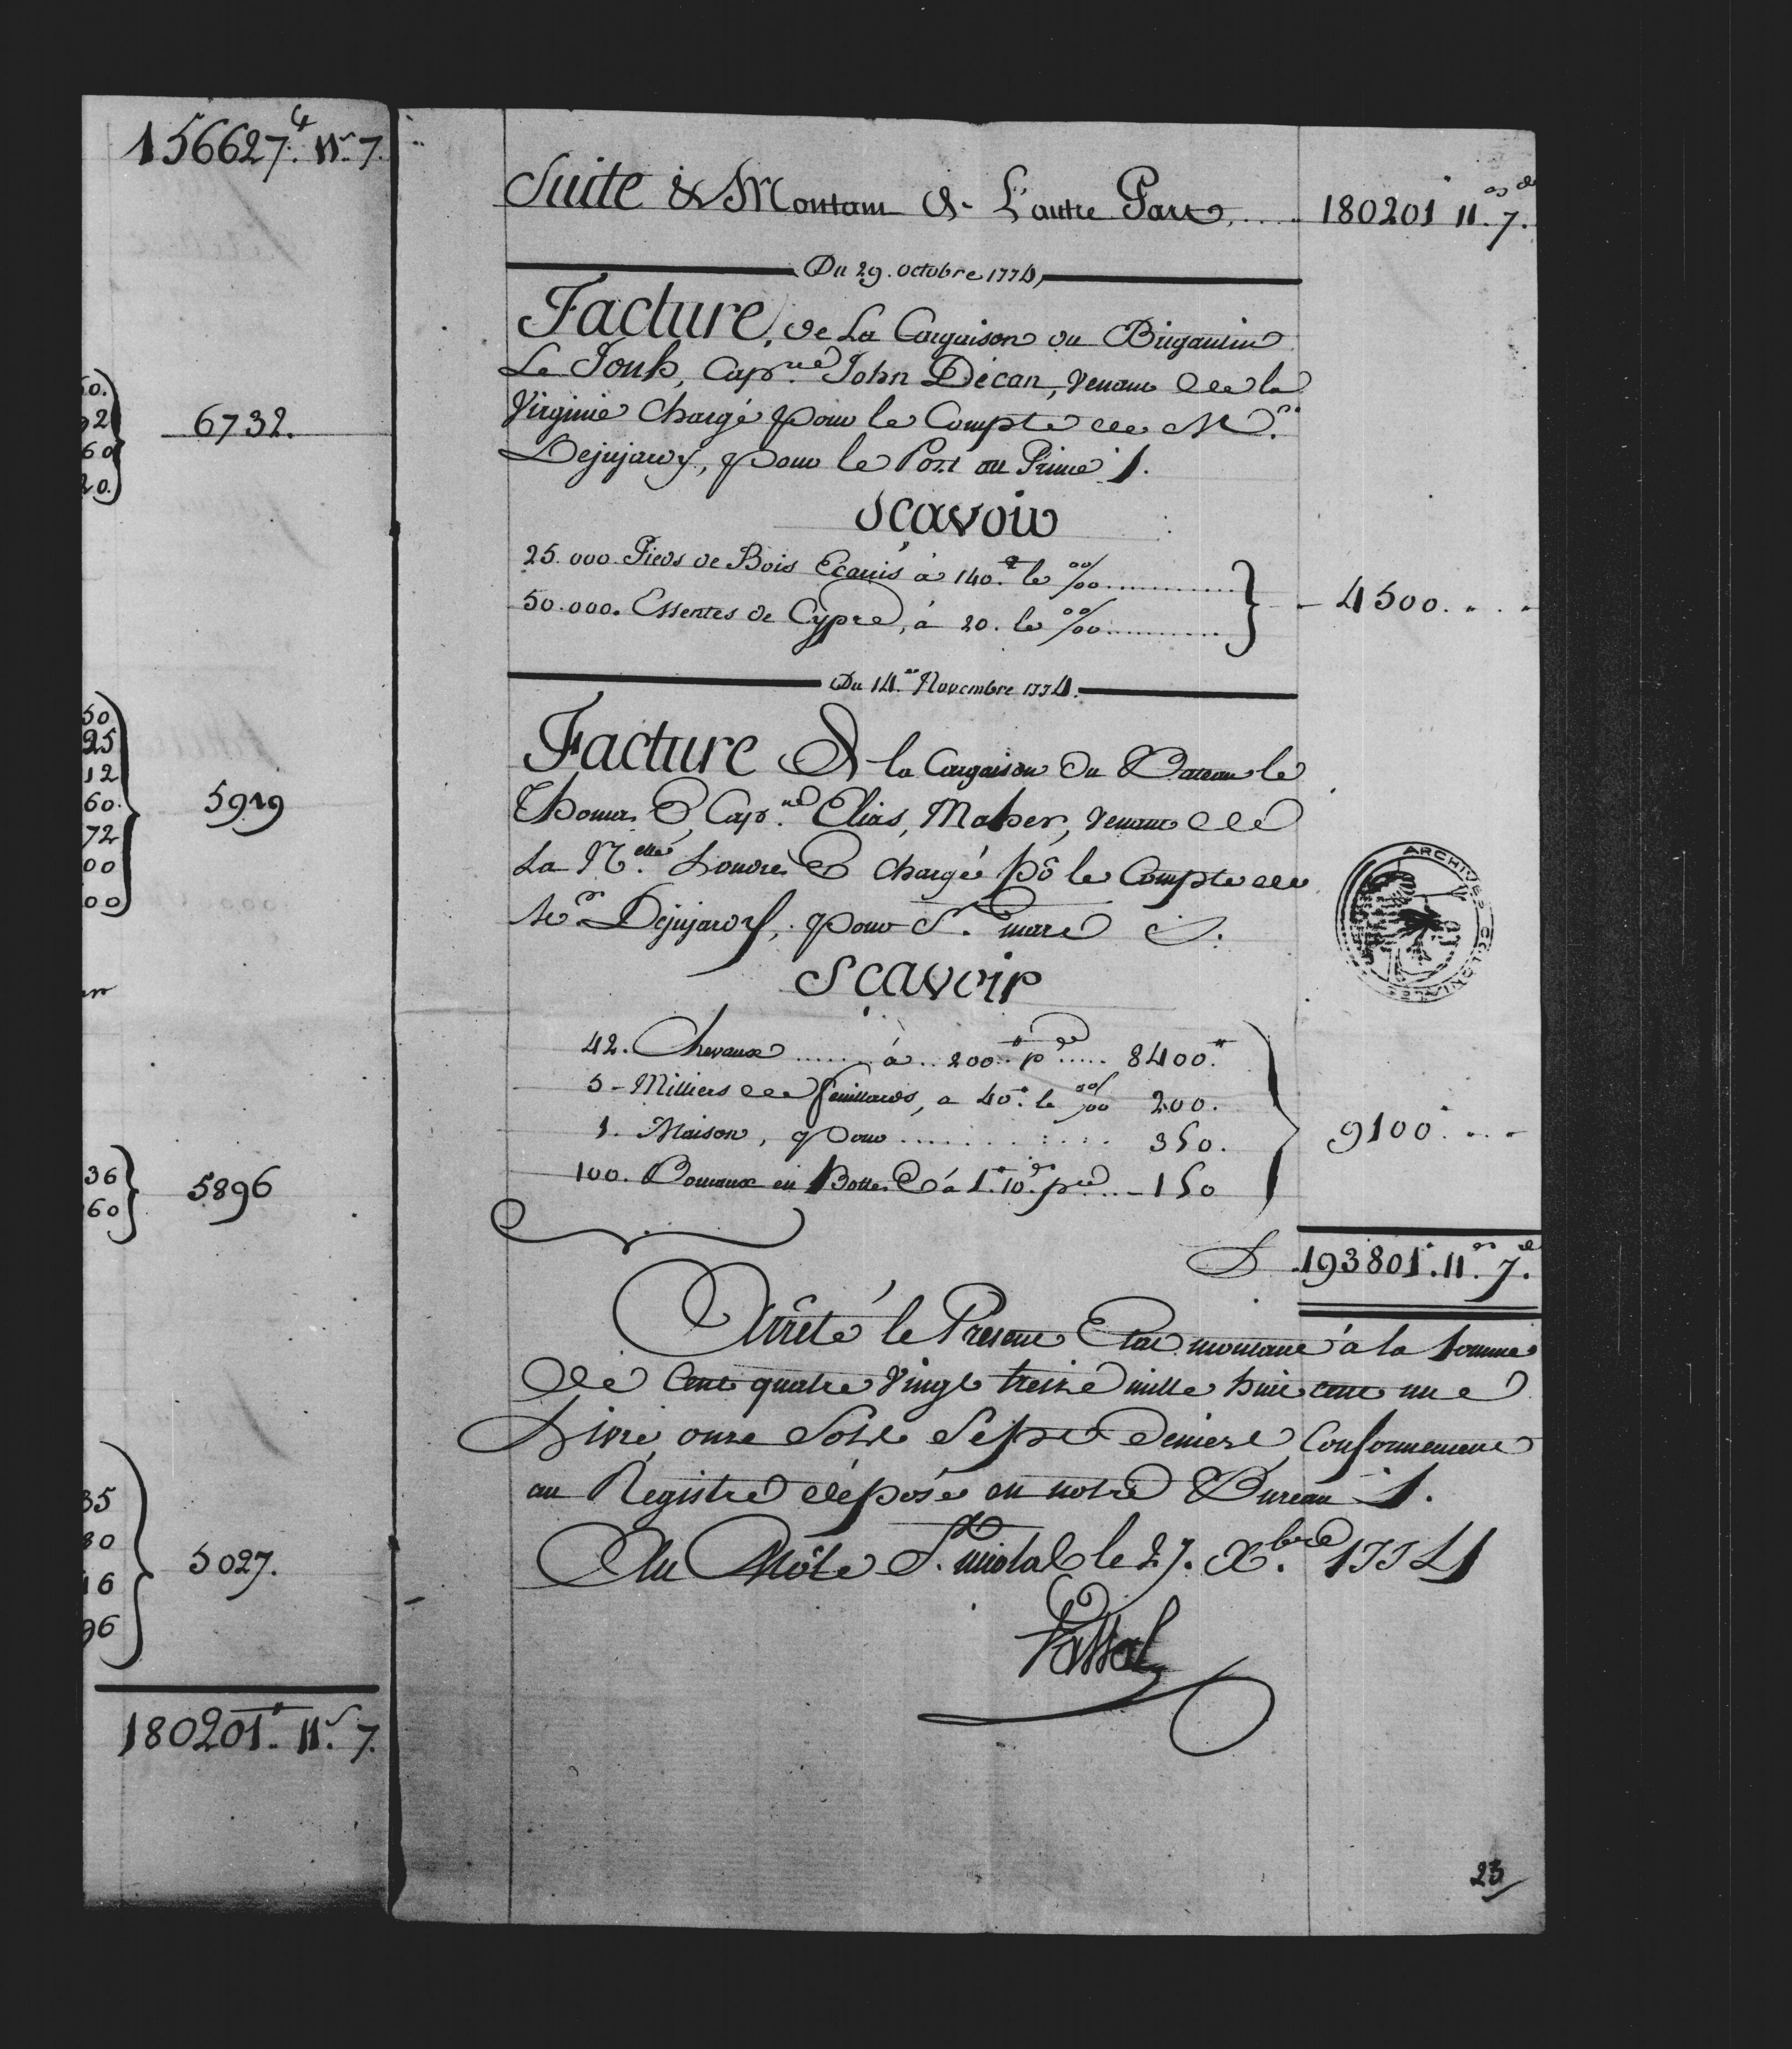 156627.₶ 11.s 7.
50.
92
60
20.
6732.
50
25
12
60.
72
00
00
5919
36
60
5896
35
80
16
96
5027.
180201.₶ 11.s 7.
Suite & Montant de L'autre Part, .... 180201.₶ 11.s 7.d
Du 29. Octobre 1774,
Facture, de La Cargaison du Brigantin
Le Capne. John Décan, Venant de la
Virginie Chargé pour le Compte de Mr.
Dejujary, pour le Port au Prince
Sçavoir
25.000. Pieds de Bois Ecaris à 140.₶ le 00/00 ............
50.000. Essentes de Cypre, à 20. le 00/00 ............ } - 4500. . . .
Du 14. Novembre 1774.
Facture de la Cargaison du Bateau le
Thomas, Capne. Elias, Maher, Venant de
La Nelle. Londres Chargée pô le Compte de
Mr. Dejujary, pour St. marc
Scavoir
42. Chevaux ........ à .. 200.₶ pce ..... 8400.₶
5 - Milliers de feuillards, a 40.₶ le 00/00 200.
1. Maison, pour ............ 350.
100. en Bottes à 1.₶ 10.s pce .... 150
9100.₶ . . .
193801.₶ 11.s 7.d
Arrêté le Present Etat montant à la Somme
De Cent quatre Vingt treize mille huit cent une
Livre, onze Sols Sept Deniers, Conformement
au Registre déposé en notre Bureau
Au Môle St. nicolas le 27. Xbre. 1774
Vassal
ARCHIVES COLONIALES
23